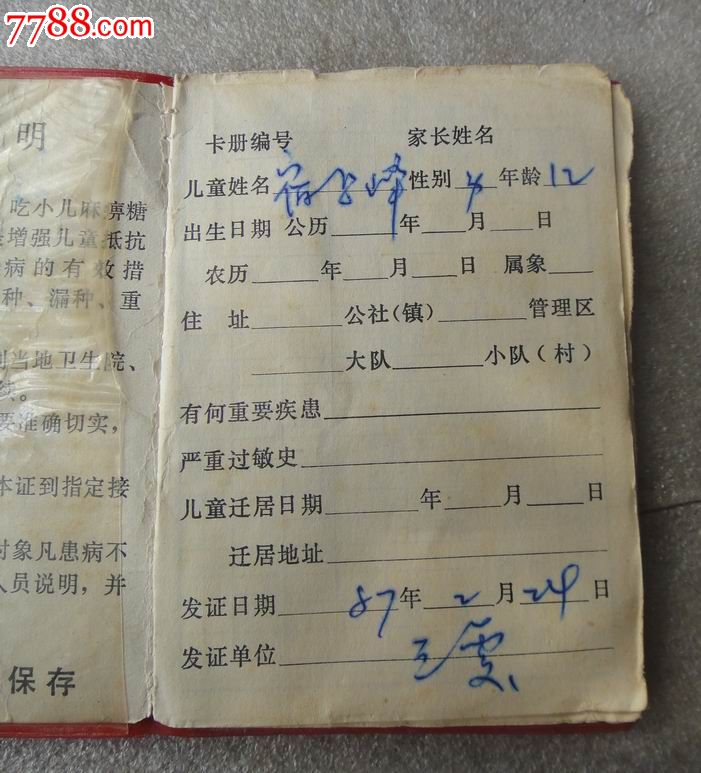 7788.com
明
吃小儿麻痹糖
增强儿童抵抗
病的有效措
种、漏种、重
当地卫生院、
要准确切实,
本证到指定接
对象凡患病不
人员说明,并
保存
卡册编号 家长姓名
儿童姓名 性别 年龄 12
出生日期 公历 年 月 日
农历 年 月 日 属象
住 址 公社(镇) 管理区
大队 小队(村)
有何重要疾患
严重过敏史
儿童迁居日期 年 月 日
迁居地址
发证日期 87 年 2 月 24 日
发证单位